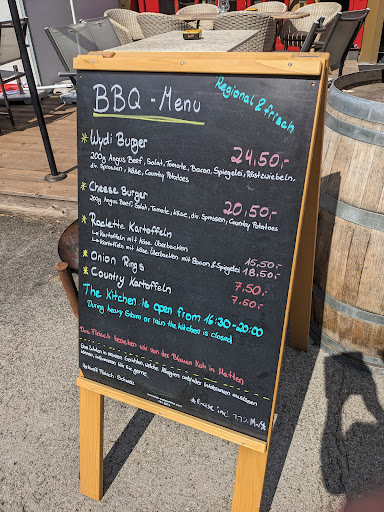 BBQ - Menu
Regional & frisch
Wydi Burger 24,50.-
200g Angus Beef, Salat, Tomate, Bacon, Spiegelei, Röstzwiebeln,
div. Sprossen, Käse, Country Potatoes
Cheese Burger 20,50.-
200g Angus Beef, Salat, Tomate, Käse, div. Sprossen, Country Potatoes
Raclette Kartoffeln
Kartoffeln mit Käse überbacken 15,50.-
Kartoffeln mit Käse überbacken mit Bacon & Spiegelei 18,50.-
Onion Rings 7,50.-
Country Kartoffeln 7,50.-
The Kitchen is open from 16:30-20:00
During heavy Storm or rain the kitchen is closed
Das Fleisch beziehen wir von der Blauen Kuh in Matten
Über Zutaten in unseren Gerichten, welche Allergien oder Intoleranzen auslösen
können, informieren wir Sie gerne.
Fleisch: Schweiz
* Preise incl. 7.7% MwSt.